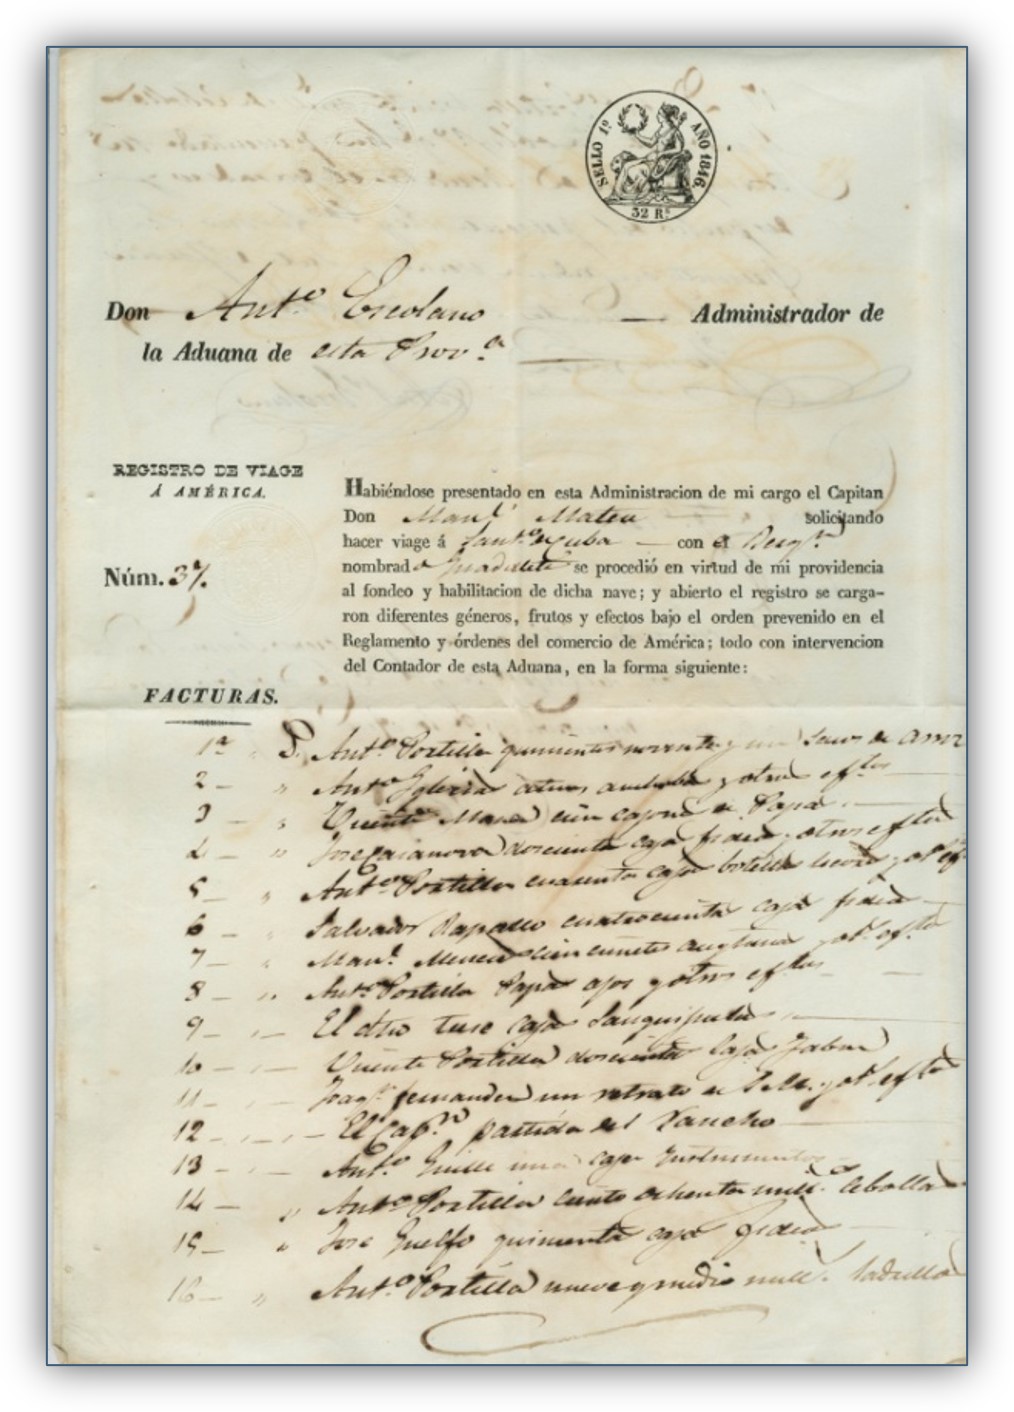 SELLO 1º AÑO 1846.
32 Rs
Don Antº Escolano Administrador de
la Aduana de esta Provª
REGISTRO DE VIAGE
Á AMÉRICA.
Núm. 37.
Habiéndose presentado en esta Administracion de mi cargo el Capitan
Don Manl Mateu solicitando
hacer viage á Santº de Cuba con el Bergn
nombrado se procedió en virtud de mi providencia
al fondeo y habilitacion de dicha nave; y abierto el registro se carga-
ron diferentes géneros, frutos y efectos bajo el orden prevenido en el
Reglamento y órdenes del comercio de América; todo con intervencion
del Contador de esta Aduana, en la forma siguiente:
FACTURAS.
1ª D. Antº Portilla quinientos noventa y un sacos de
2 " Antº Iglesias y otros eftos
3 " Vicente cien cajones de Papas
4 " Jose Casanova doscientas cajas fideos y otros eftos
5 " Antº Portilla cuarenta cajas botellas y ots
6 " Salvador Rapallo cuatrocientas cajas fideos
7 " Manl cien cuñetes aceytunas y ots eftos
8 " Antº Portilla Papas ajos y otros eftos
9 El dho trece cajas Sanguijuelas
10 Vicente Portilla doscientas cajas Jabon
11 Joaqn Fernandez un retrato de y ots eftos
12 El Capn partida del Rancho
13 Antº una caja Instrumentos
14 " Antº Portilla ciento ochenta mills Cebollas
15 " Jose Guelfo quinientas cajas fideos
16 " Antº Portilla nueve y medio mill. Ladrillos